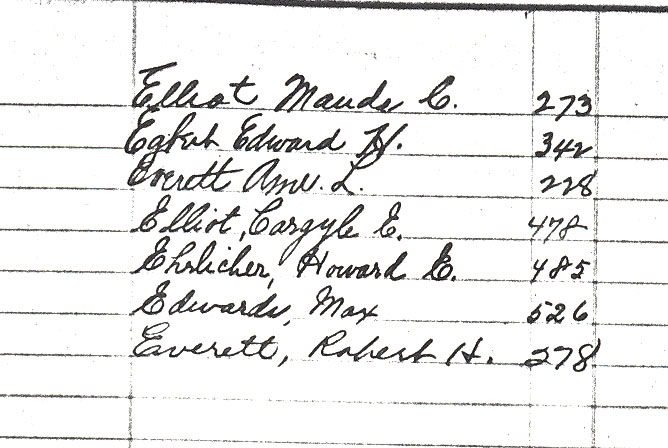 Elliot Maude C. 273
Egbert Edward H. 342
Everett L. 228
Elliot, Cargyle E. 478
Ehrlicher, Howard E. 485
Edwards, Max 526
Everett, Robert H. 278